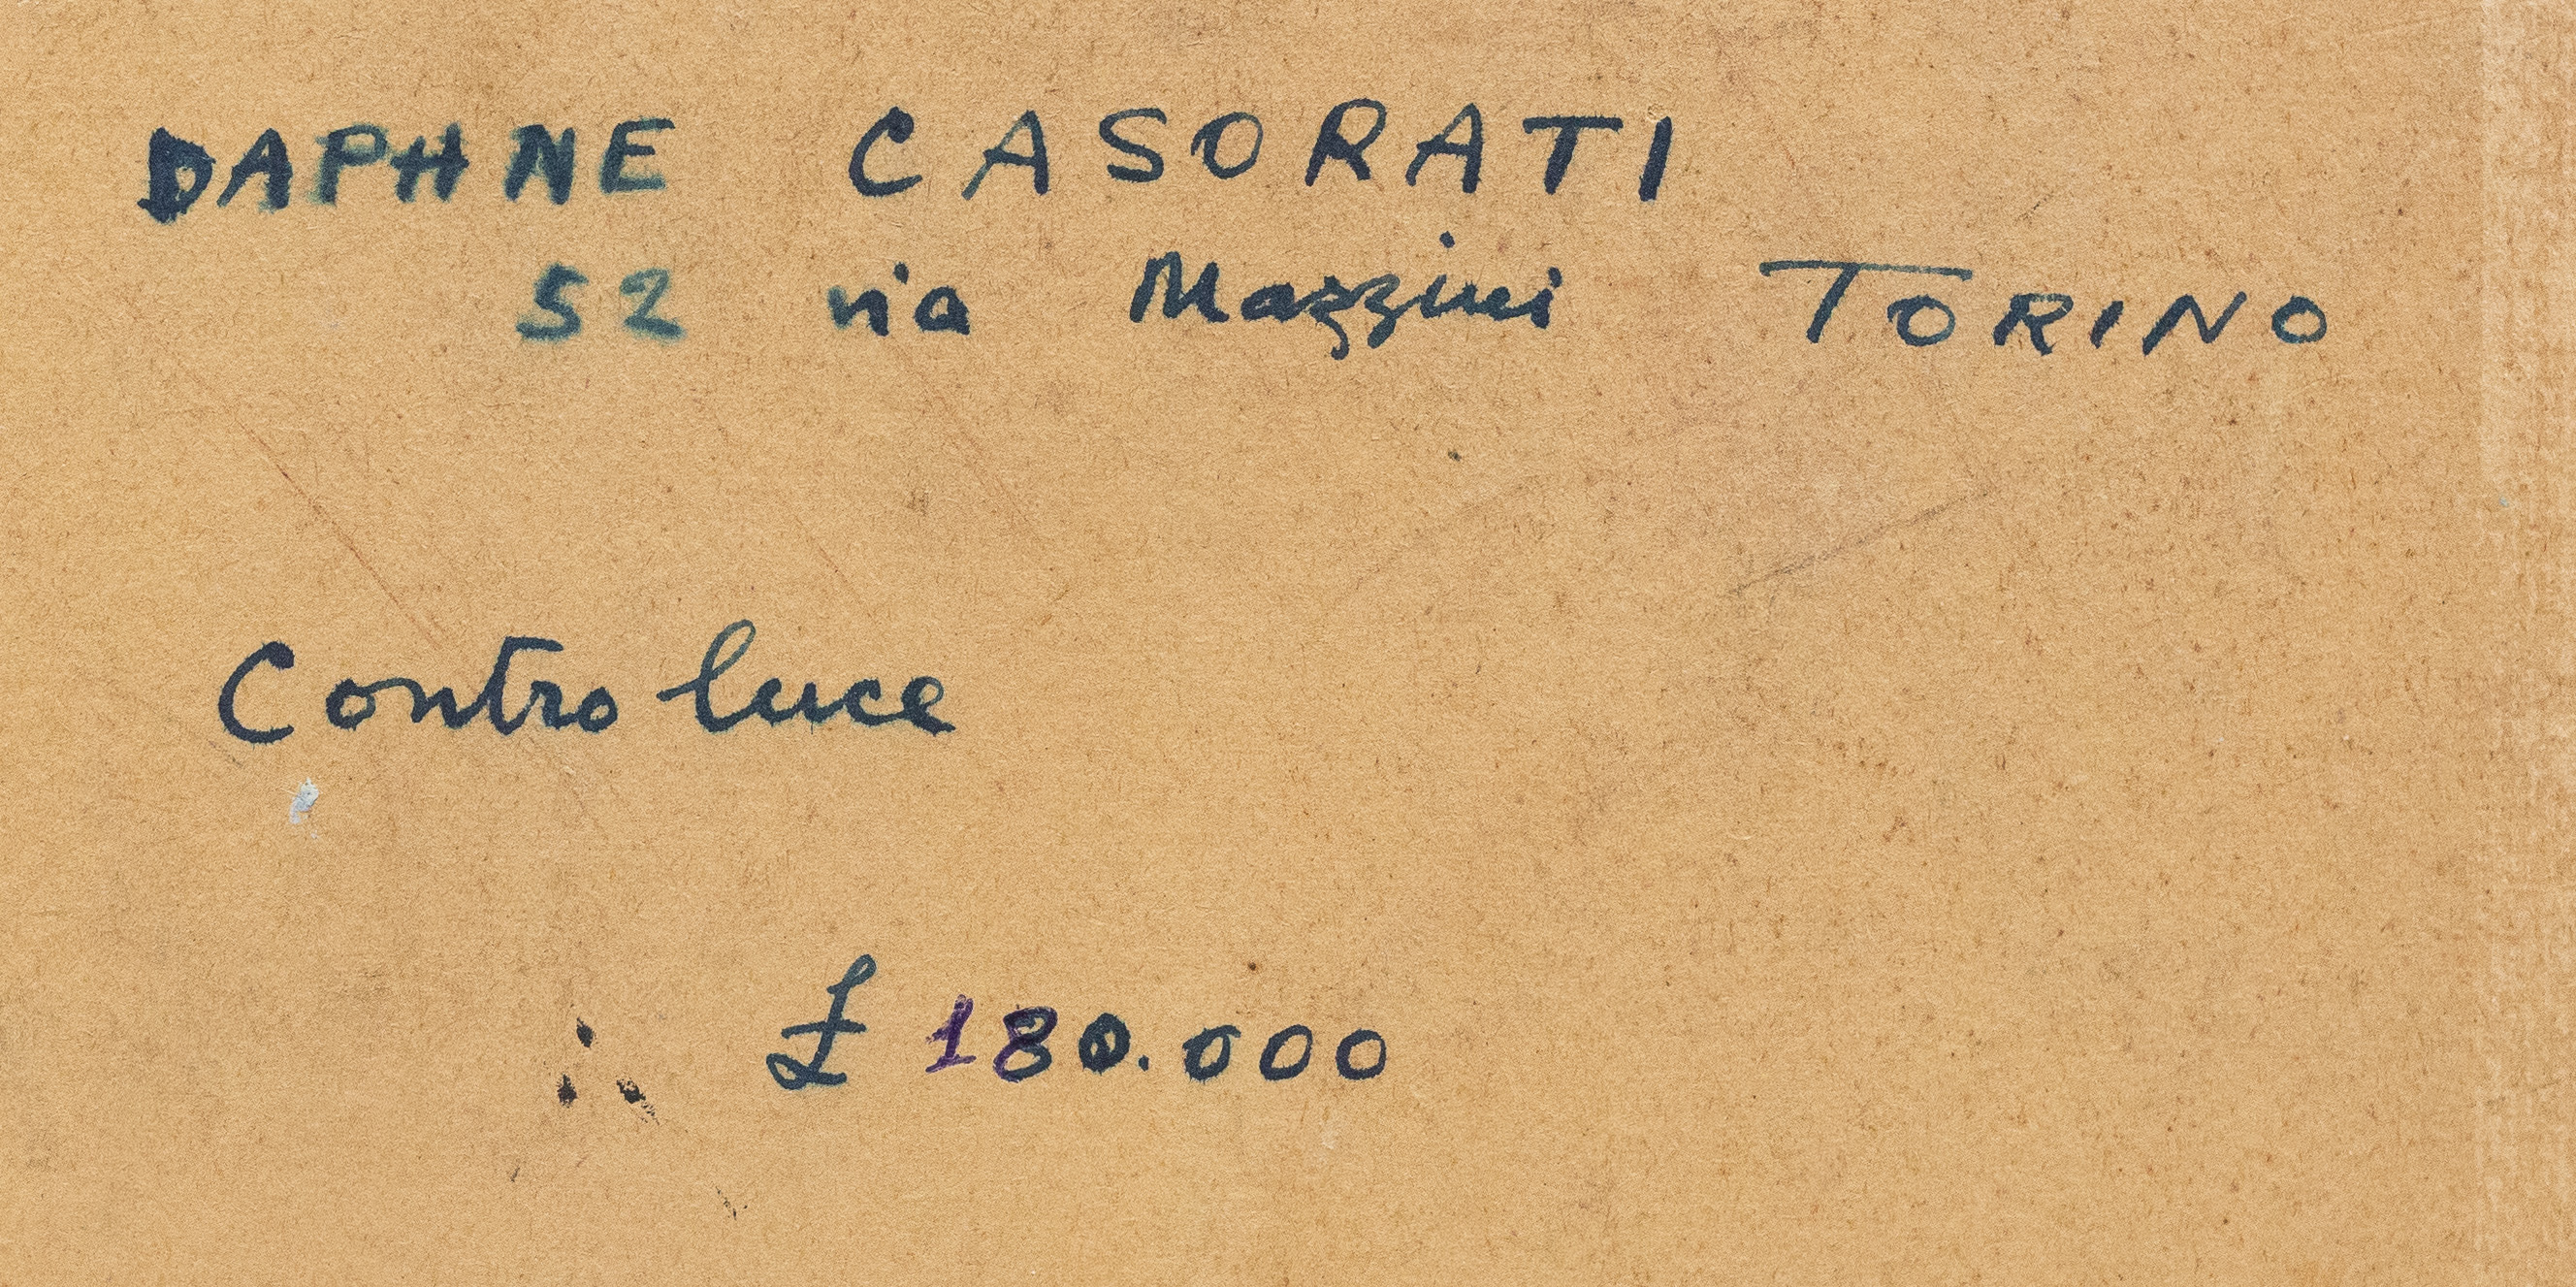 DAPHNE CASORATI
52 via Mazzini TORINO
Controluce
£ 180.000